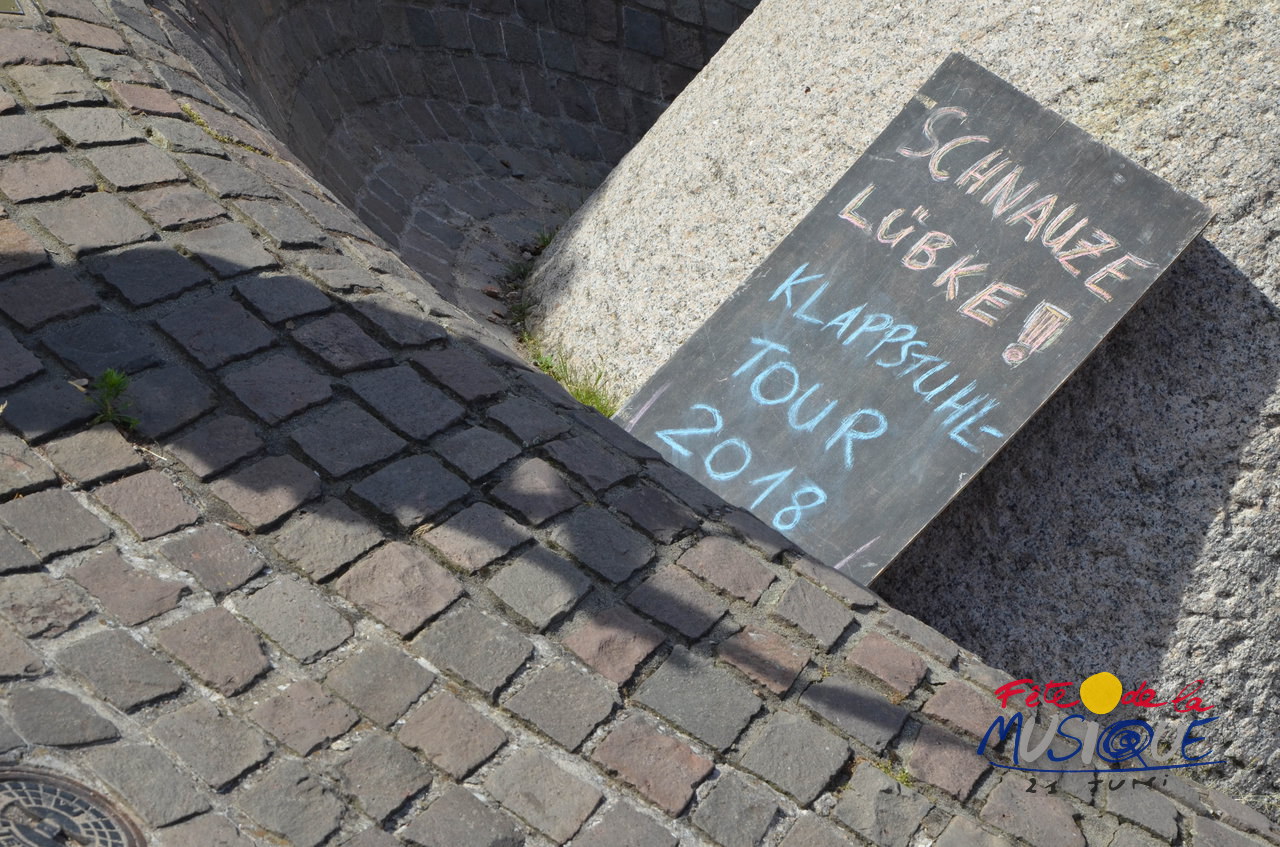 SCHNAUZE
LÜBKE!
KLAPPSTUHL-
TOUR
2018
Fête de la
MUSIQUE
21 JUNI